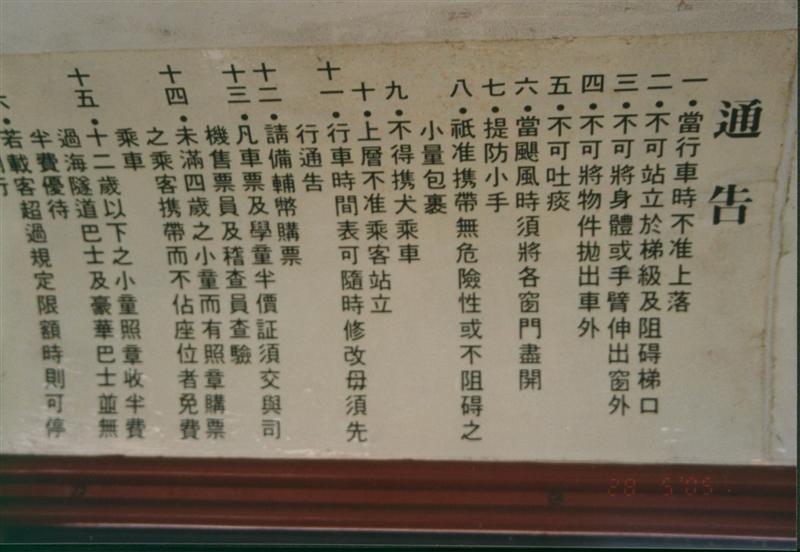 通告
一・當行車時不准上落
二・不可站立於梯級及阻碍梯口
三・不可將身體或手臂伸出窗外
四・不可將物件拋出車外
五・不可吐痰
六・當颶風時須將各窗門盡開
七・提防小手
八・祇准携帶無危險性或不阻碍之
小量包裹
九・不得携犬乘車
十・上層不准乘客站立
十一・行車時間表可隨時修改毋須先
行通告
十二・請備輔幣購票
十三・凡車票及學童半價証須交與司
機售票員及稽查員查驗
十四・未滿四歲之小童而有照章購票
之乘客携帶而不佔座位者免費
乘車
十五・十二歲以下之小童照章收半費
過海隧道巴士及豪華巴士並無
半費優待
若載客超過規定限額時則可停
28 5'05